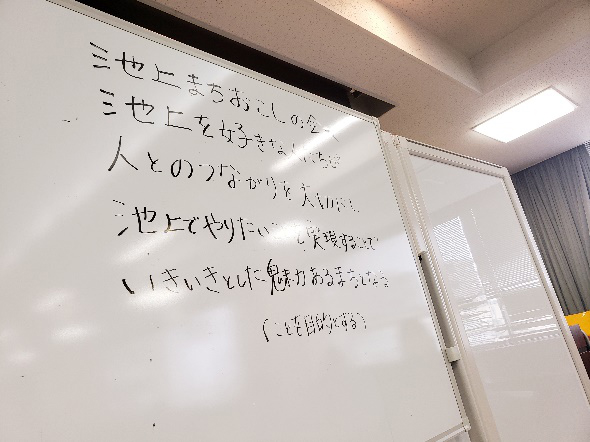 池上まちおこしの会へ
池上を好きな人たちは
人とのつながりを大切にし
池上でやりたい を実現することで
いきいきとした魅力あるまちとなる
(ことを目的とする)